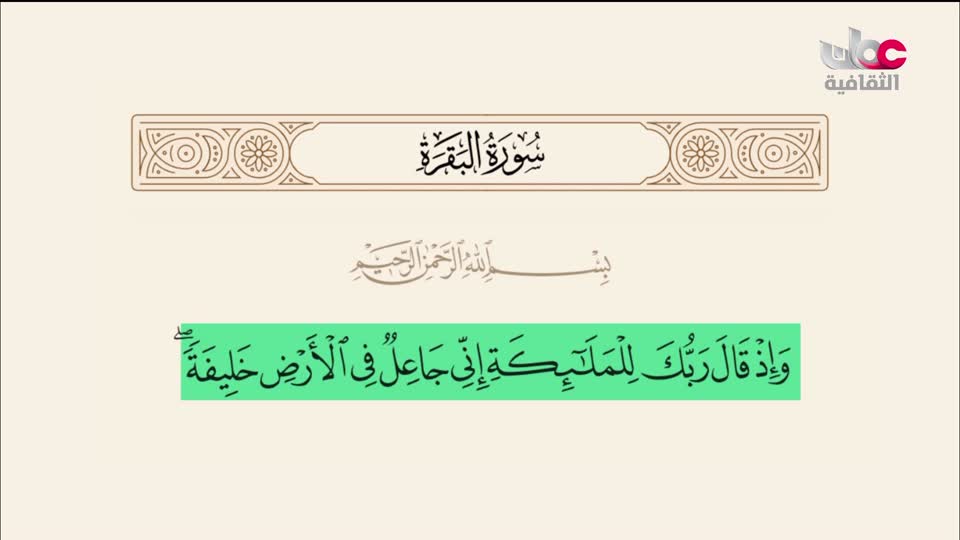 عمان
الثقافية
سُورَةُ البَقَرَةِ
بِسْمِ ٱللَّهِ ٱلرَّحْمَٰنِ ٱلرَّحِيمِ
وَإِذْ قَالَ رَبُّكَ لِلْمَلَٰٓئِكَةِ إِنِّي جَاعِلٌ فِي ٱلْأَرْضِ خَلِيفَةً ۖ